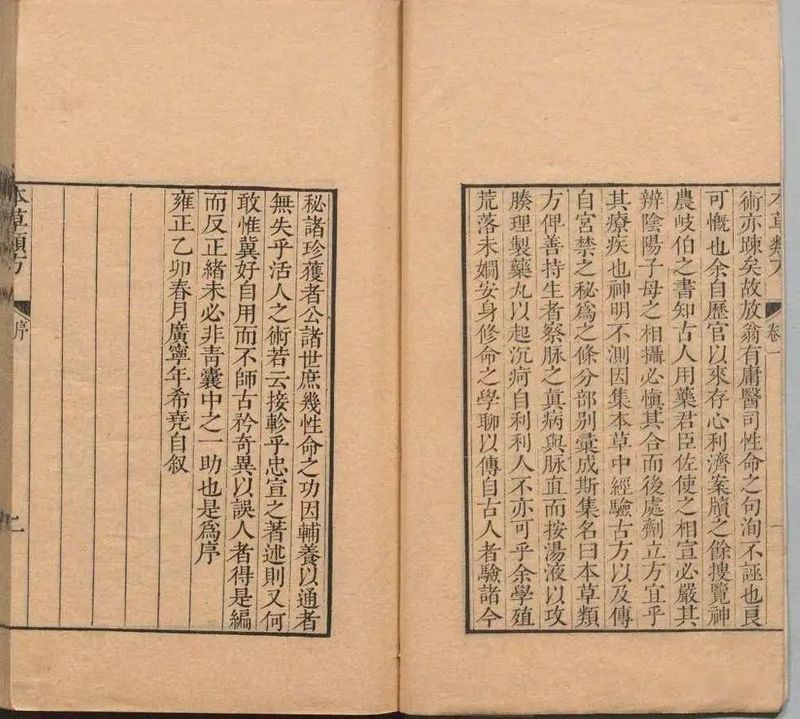 本草類方
卷一
一
術亦踈矣故放翁有庸醫司性命之句洵不誣也良
可慨也余自歷官以來存心利濟案牘之餘搜覽神
農岐伯之書知古人用藥君臣佐使之相宣必嚴其
辨陰陽子母之相攝必愼其合而後處劑立方宜乎
其療疾也神明不測因集本草中經驗古方以及傳
自宮禁之秘爲之條分部別彙成斯集名曰本草類
方俾善持生者察脉之眞病與脉直而按湯液以攻
腠理製藥丸以起沉疴自利利人不亦可乎余學殖
荒落未嫺安身修命之學聊以傳自古人者驗諸今
秘諸珍獲者公諸世庶幾性命之功因輔養以通者
無失乎活人之術若云接軫乎忠宣之著述則又何
敢惟冀好自用而不師古矜奇異以誤人者得是編
而反正緒未必非靑囊中之一助也是爲序
雍正乙卯春月廣寧年希堯自叙
本草類方
序
二